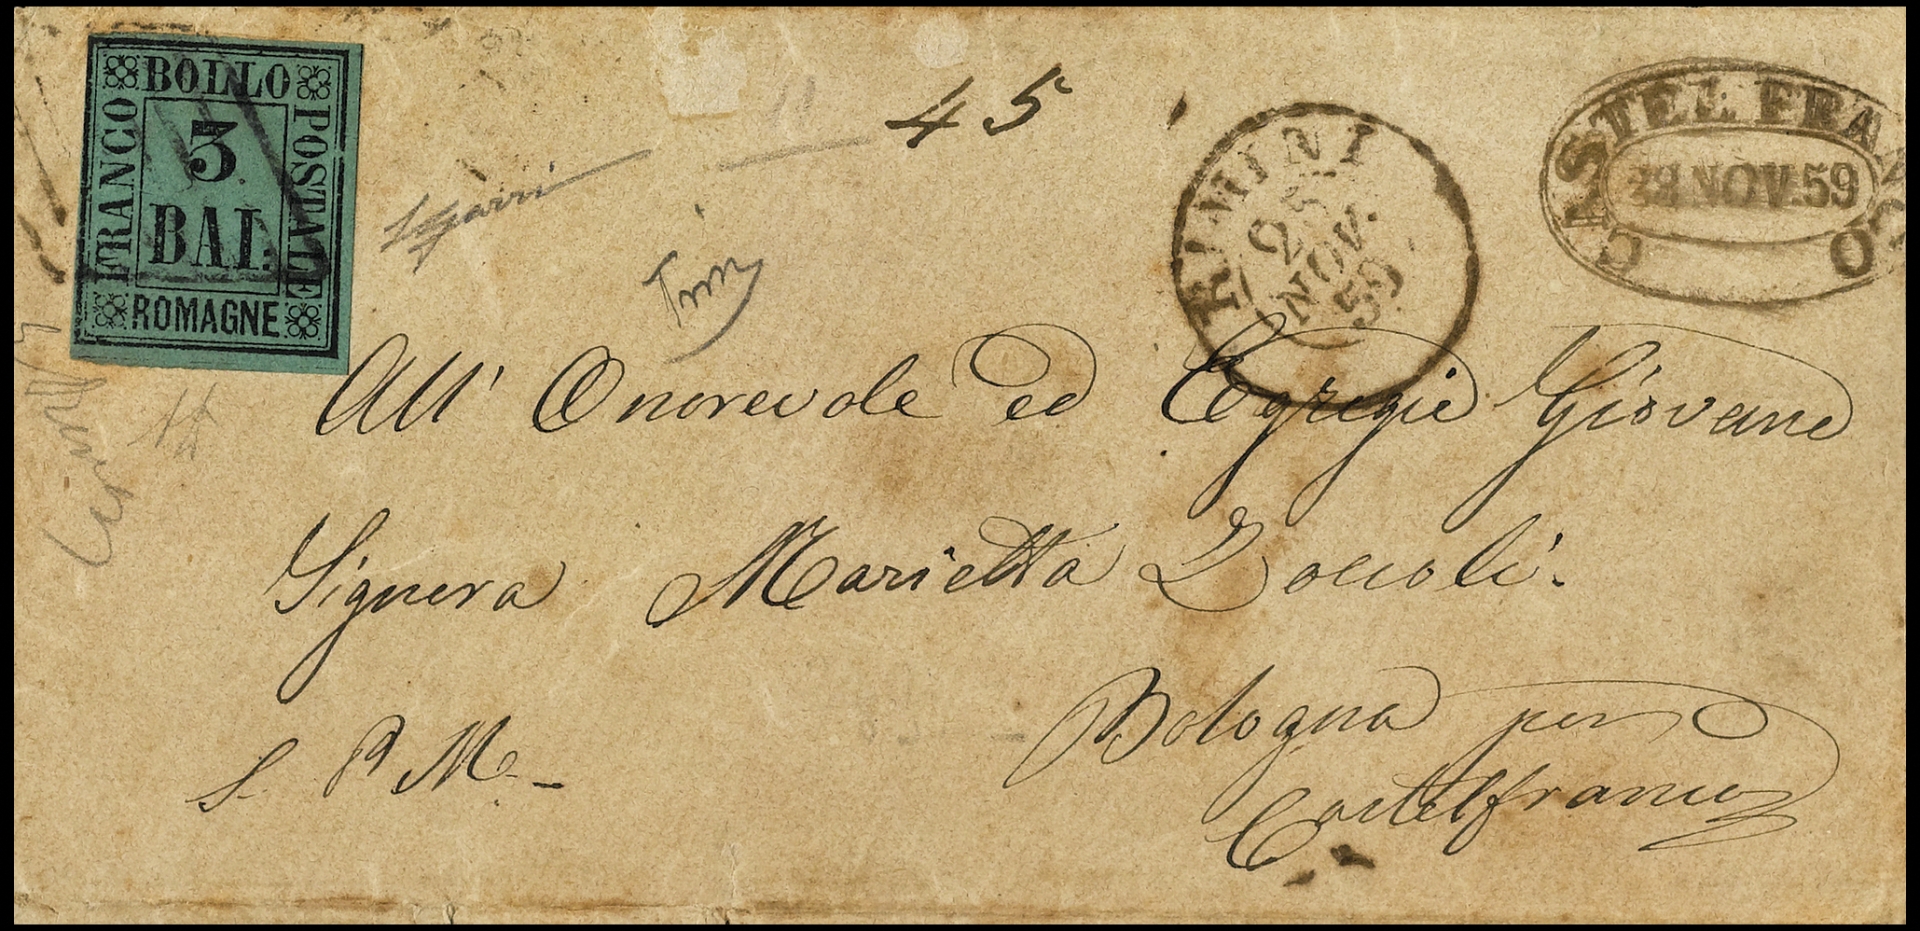 BOLLO
FRANCO
POSTALE
3
BAI.
ROMAGNE
45
RIMINI
25
NOV.
59
CASTEL FRANCO
NOV. 59
All' Onorevole ed Egregie Giovane
Signora Marietta Zoccoli.
S. P. M.
Bologna per
Castelfranco